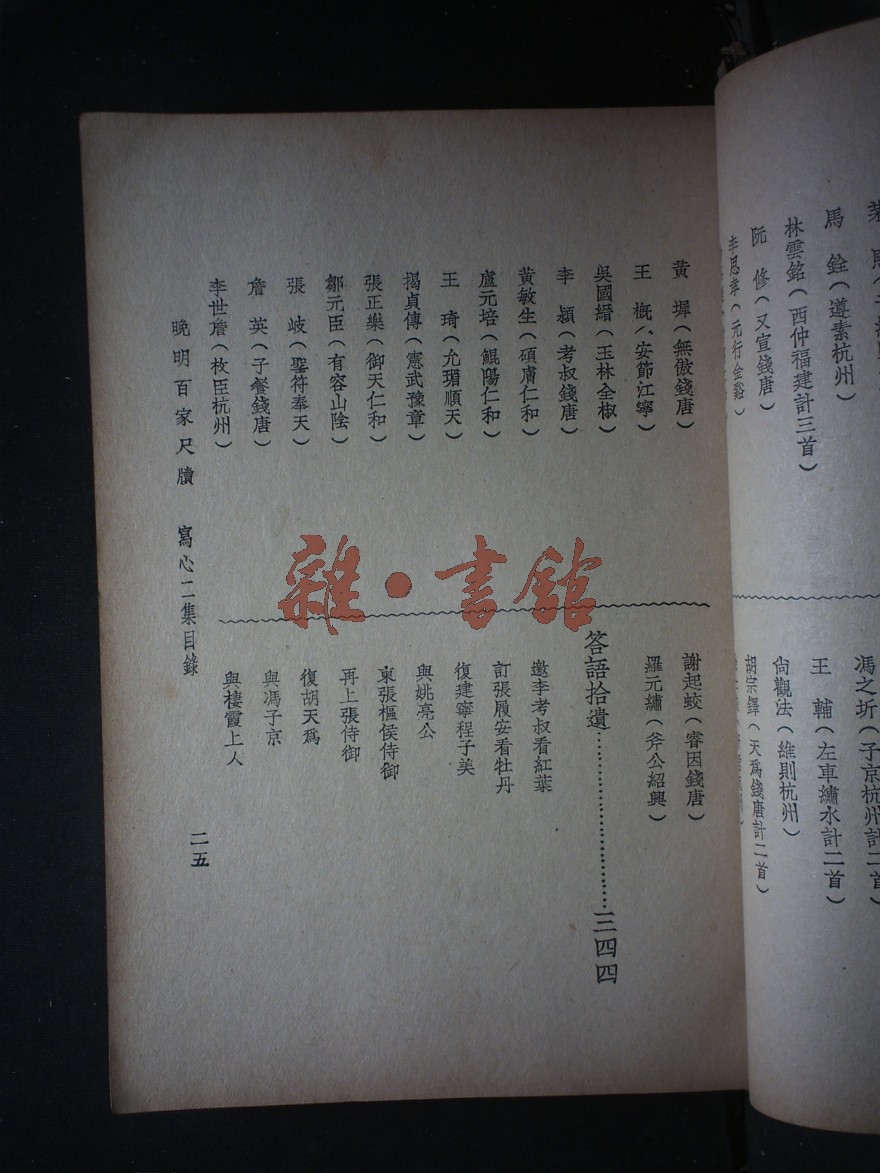 馬　銓（遵素杭州）
林雲銘（西仲福建計三首）
阮　修（又宣錢唐）
李思孝（元行金谿）
馮之圻（子京杭州計二首）
王　輔（左車繡水計二首）
尙觀法（維則杭州）
胡宗鐸（天爲錢唐計二首）
黃　墀（無傲錢唐）
王　槪（安節江寧）
吳國縉（玉林全椒）
李　穎（考叔錢唐）
黃敏生（碩膚仁和）
盧元培（鯤陽仁和）
王　琦（允瑨順天）
揭貞傳（憲武豫章）
張正樂（御天仁和）
鄒元臣（有容山陰）
張　岐（聖符奉天）
詹　英（子餐錢唐）
李世詹（枚臣杭州）
謝起蛟（睿因錢唐）
羅元繡（斧公紹興）
答語拾遺……………………三四四
邀李考叔看紅葉
訂張履安看牡丹
復建寧程子美
與姚亮公
柬張樞侯侍御
再上張侍御
復胡天爲
與馮子京
與棲霞上人
晚明百家尺牘　寫心二集目錄
二五
雜·書館